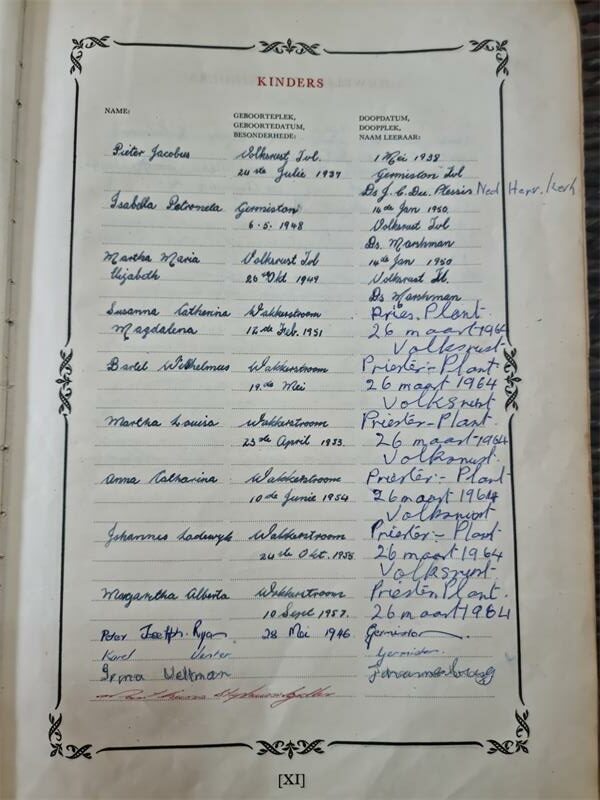 KINDERS
NAME:
GEBOORTEPLEK,
GEBOORTEDATUM,
BESONDERHEDE:
DOOPDATUM,
DOOPPLEK,
NAAM LEERAAR:
Pieter Jacobus Volksrust Tvl. 1 Mei 1938
24ste Julie 1937 Germiston Tvl
Ds J. C. Du Plessis Ned Herv. Kerk
Isabella Petroneta Germiston 14de Jan 1950
6.5.1948 Volksrust Tvl
Ds. Marshman
Martha Maria Volksrust Tvl 14de Jan 1950
Elizabeth 26ste Okt 1949 Volksrust Tvl.
Ds Marshman
Susanna Catherina Wakkerstroom Pries. Plant.
Magdalena 12de Feb. 1951 26 maart 1964
Volksrust
Bartel Wilhelmus Wakkerstroom Priester-Plant
19de Mei 26 maart 1964
Volksrust
Martha Louisa Wakkerstroom Priester-Plant.
23ste April 1953. 26 maart-1964
Volksrust.
Anna Catharina Wakkerstroom Priester-Plant
10de Junie 1954 26 maart 1964
Volksrust
Johannes Lodewyk Wakkerstroom Priester-Plant
24ste Okt. 1955 26 maart 1964
Volksrust
Margaretha Alberta Wakkerstroom Priester Plant.
10 Sept 1957. 26 maart 1964
Peter Joseph Ryan 28 Mai 1946 Germiston
Karel Venter Germiston
Weltman
[XI]